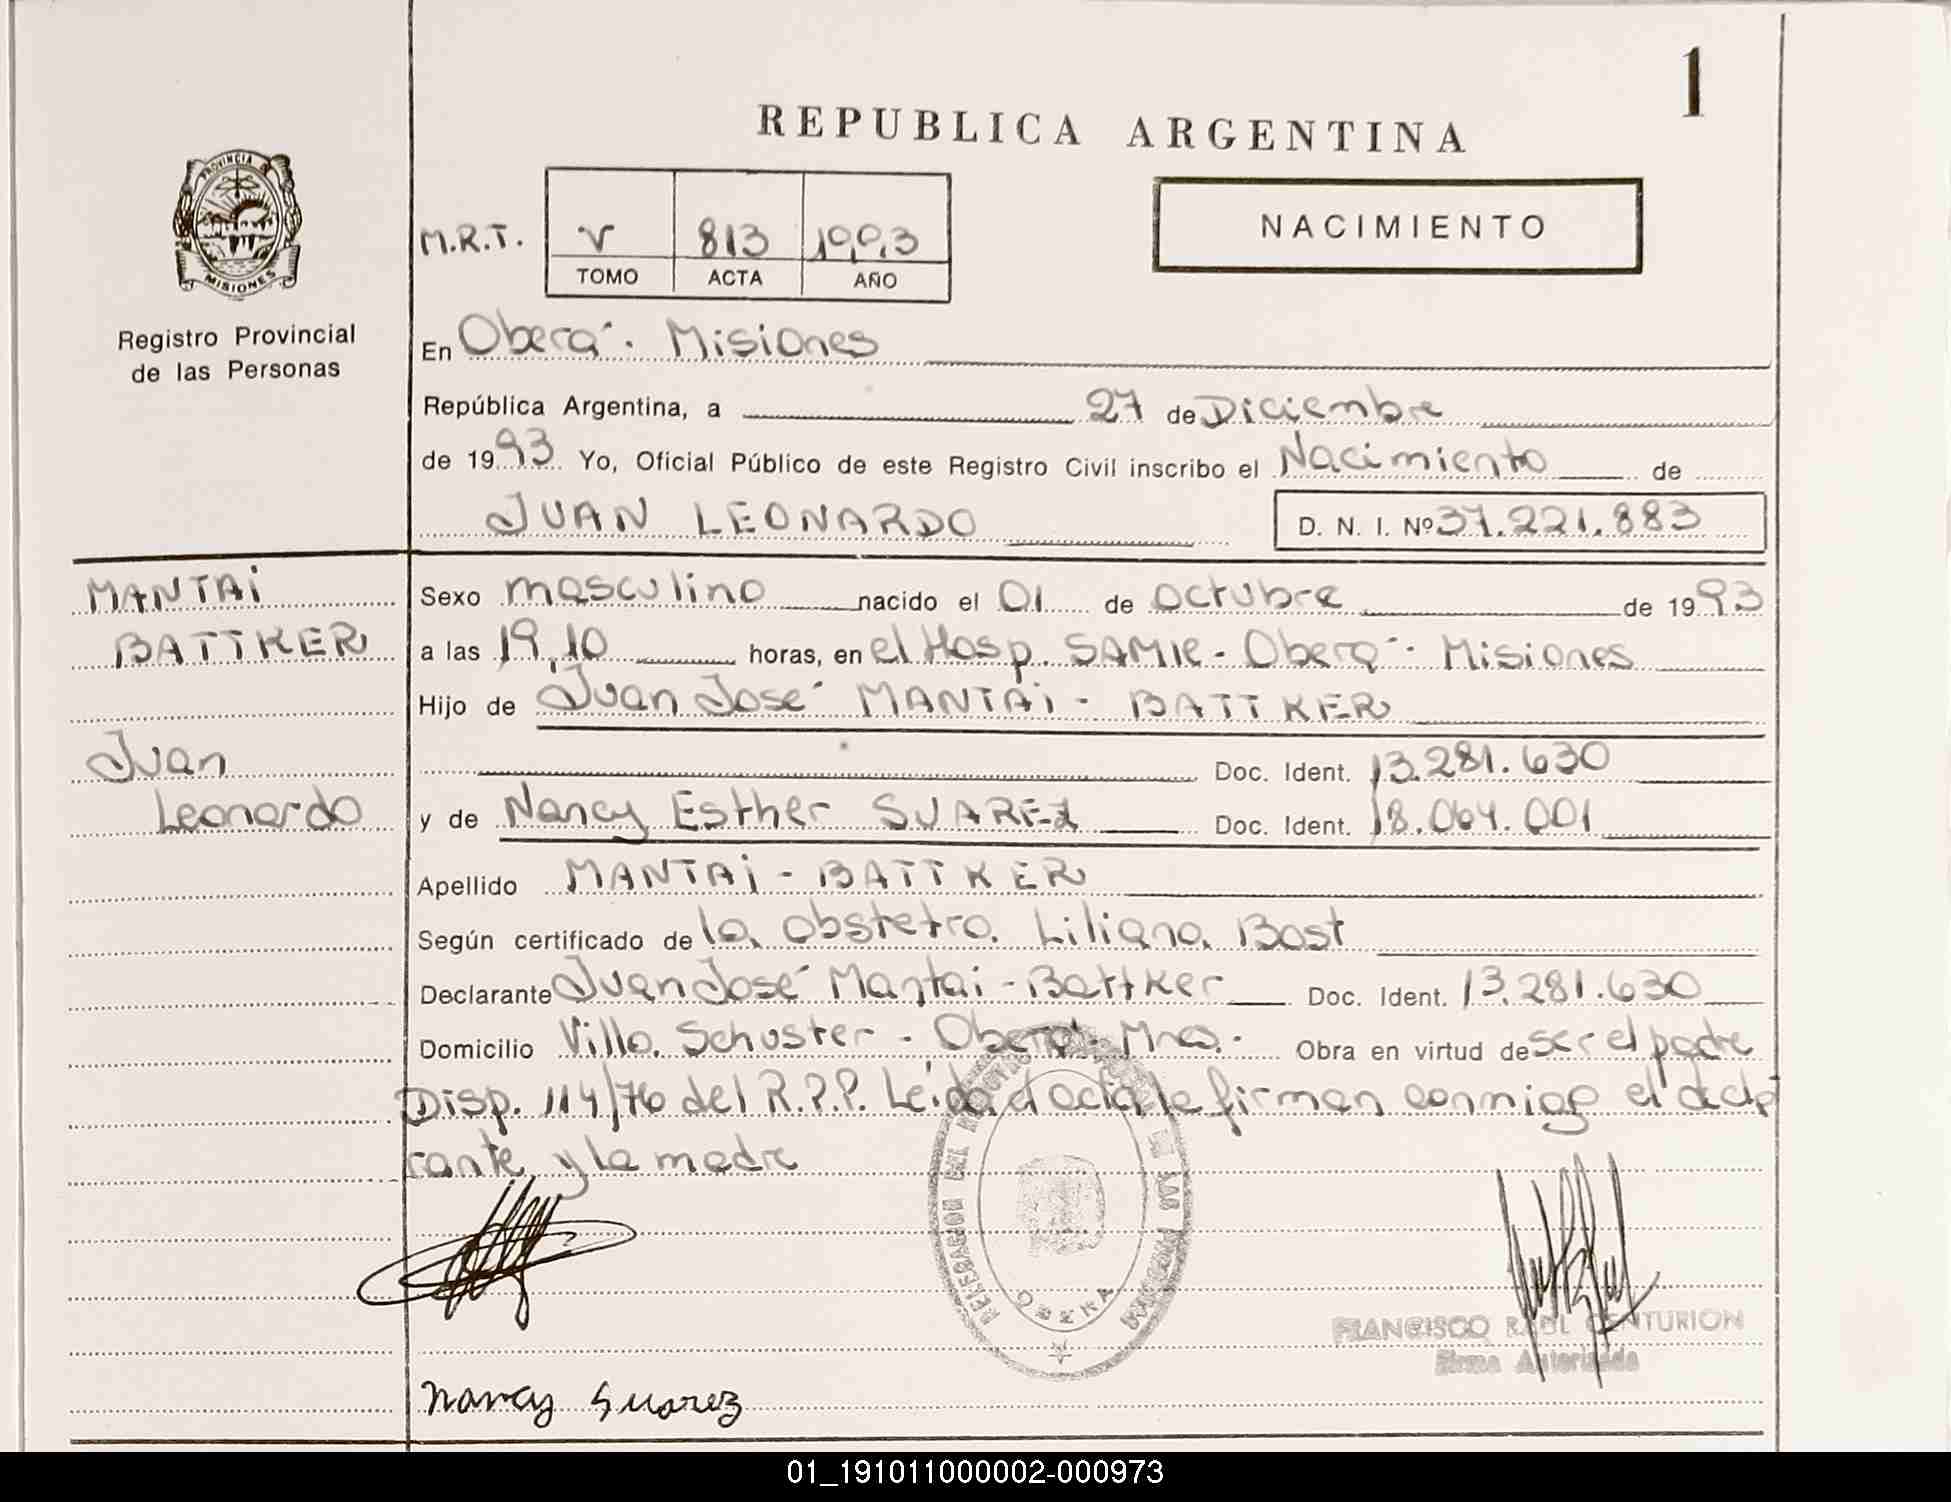 1
REPUBLICA ARGENTINA
PROVINCIA DE
MISIONES
Registro Provincial
de las Personas
M.R.T. V 813 1993
TOMO ACTA AÑO
NACIMIENTO
En Oberá. Misiones
República Argentina, a 27 de Diciembre
de 1993 Yo, Oficial Público de este Registro Civil inscribo el Nacimiento de
JUAN LEONARDO D. N. I. Nº 37.221.883
MANTAI
BATTKER
Juan
Leonardo
Sexo masculino nacido el 01 de octubre de 1993
a las 19,10 horas, en el Hosp. SAMIC - Oberá - Misiones
Hijo de Juan José MANTAI - BATTKER
Doc. Ident. 13.281.630
y de Nancy Esther SUAREZ Doc. Ident. 18.064.001
Apellido MANTAI - BATTKER
Según certificado de la obstetra. Liliana Bost
Declarante Juan José Mantai - Battker Doc. Ident. 13.281.630
Domicilio Villa Schuster - Oberá - Mnes. Obra en virtud de ser el padre
Disp. 114/76 del R.P.P. Leida el acta le firman conmigo el decla
rante y la madre
DELEGACION DEL REGISTRO DE LAS PERSONAS
OBERA
FRANCISCO RAUL CENTURION
Firma Autorizada
Nancy Suarez
01_191011000002-000973